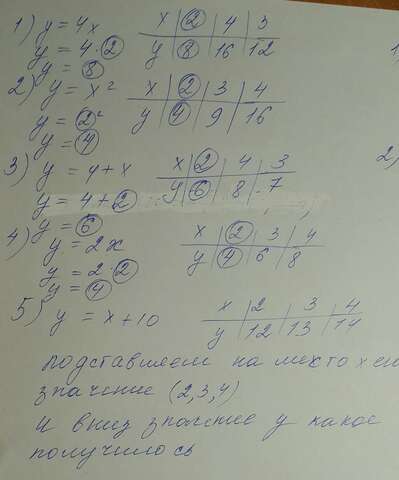 1) y = 4x
x 2 4 3
y = 4 · 2
y 8 16 12
y = 8
2) y = x²
x 2 3 4
y = 2²
y 4 9 16
y = 4
3) y = 4 + x
x 2 4 3
y = 4 + 2
y 6 8 7
y = 6
4) y = 2x
x 2 3 4
y = 2 · 2
y 4 6 8
y = 4
5) y = x + 10
x 2 3 4
y 12 13 14
подставляем на место x
значение (2,3,4)
и вниз значение y какое
получилось
1)
2,